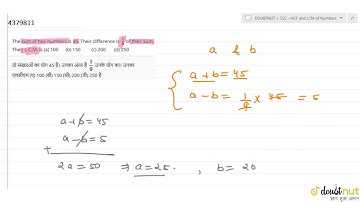 DOUBTNUT > SSC - HCF and LCM of Numbers
4379811
The sum of two numbers is 45. Their difference is 1/9 of their sum.
Their L.C.M. is (a) 100 (b) 150 (c) 200 (d) 250
दो संख्याओं का योग 45 है। उनका अंतर है 1/9 उनके योग का। उनका
एलसीएम (ए) 100 (बी) 150 (सी) 200 (डी) 250 है
a & b
a + b = 45
a - b = 1/9 × 45 = 5
a + b = 45
a - b = 5
+
2a = 50 ⇒ a = 25 , b = 20
doubtnut